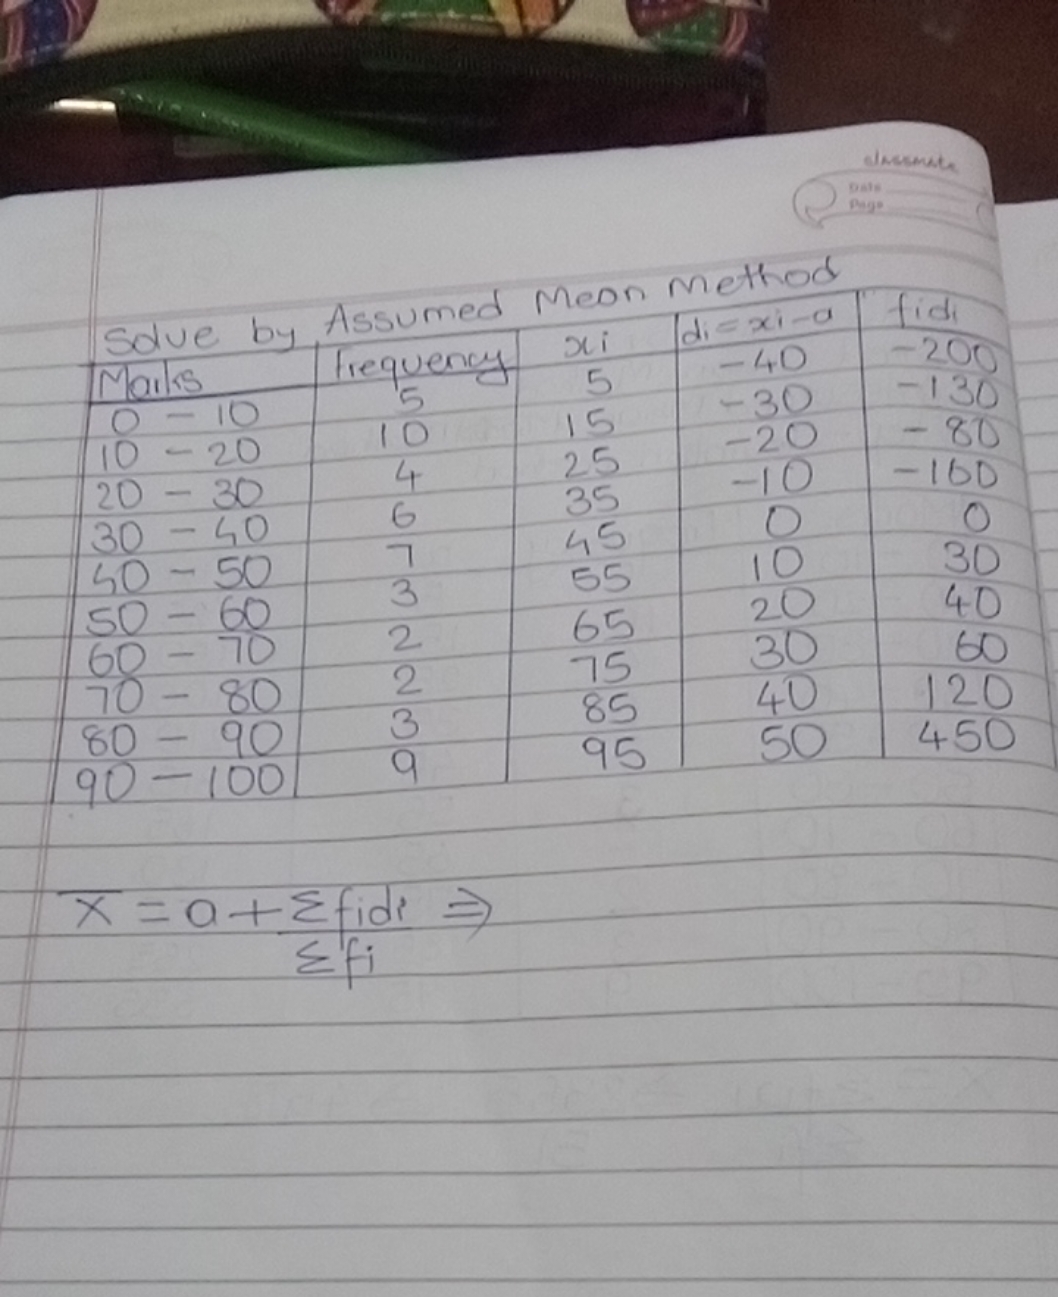 classmate
Date
Page
Solve by Assumed Mean Method
Marks frequency xi di = xi - a fidi
0 - 10 5 5 -40 -200
10 - 20 10 15 -30 -130
20 - 30 4 25 -20 -80
30 - 40 6 35 -10 -160
40 - 50 7 45 0 0
50 - 60 3 55 10 30
60 - 70 2 65 20 40
70 - 80 2 75 30 60
80 - 90 3 85 40 120
90 - 100 9 95 50 450
x̄ = a + Σfidi ⇒
Σfi